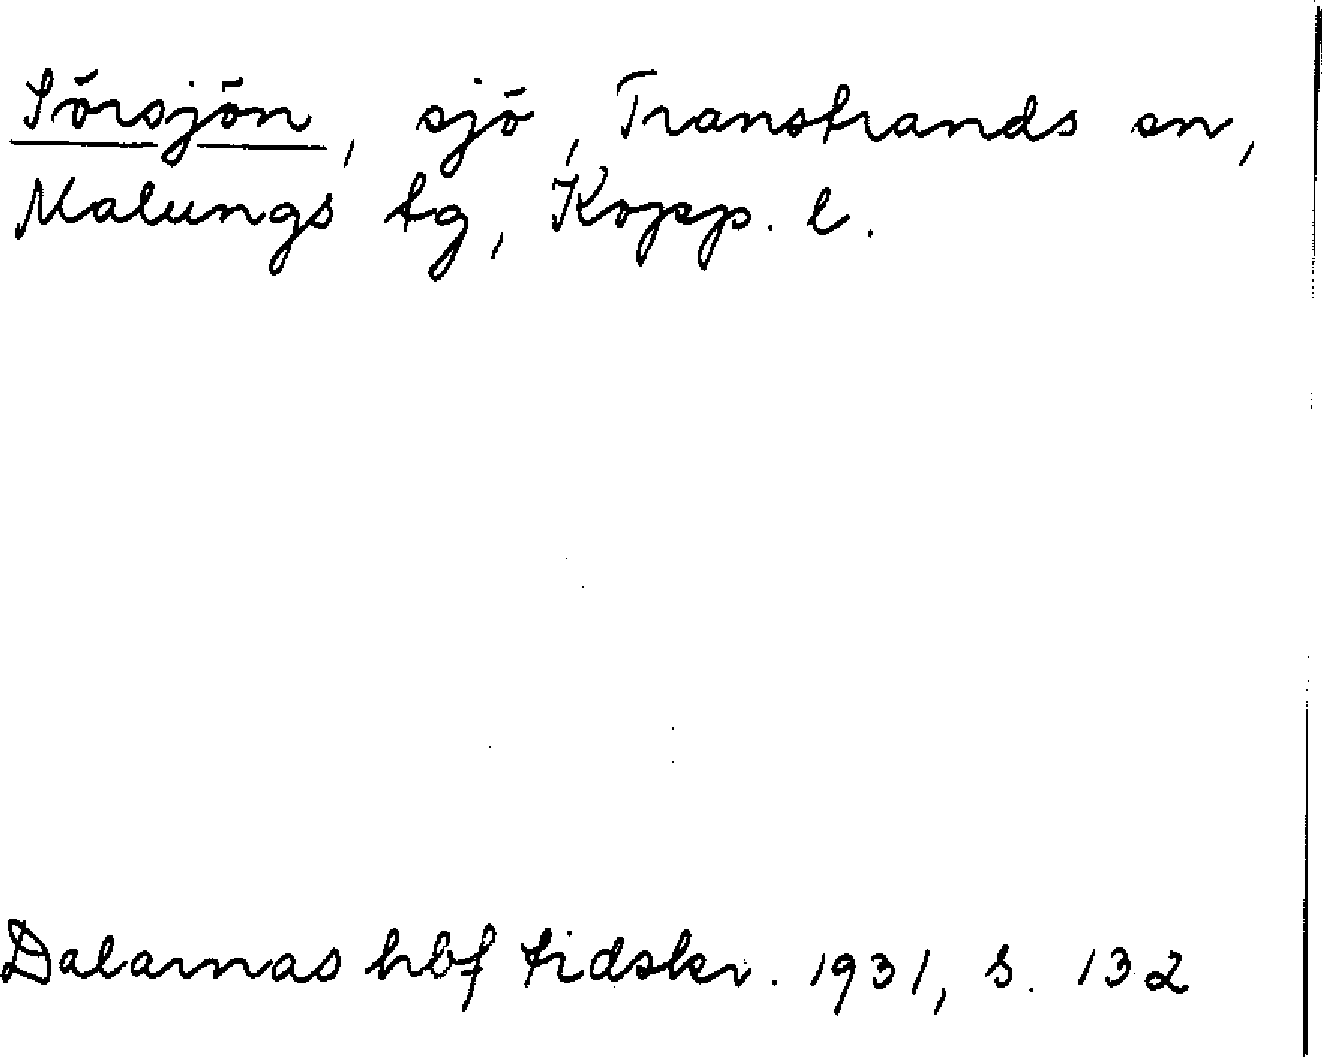 Sörsjön, sjö, Transtrands sn,
Malungs tg, Kopp. l.
Dalarnas hbf tidskr. 1931, s. 132